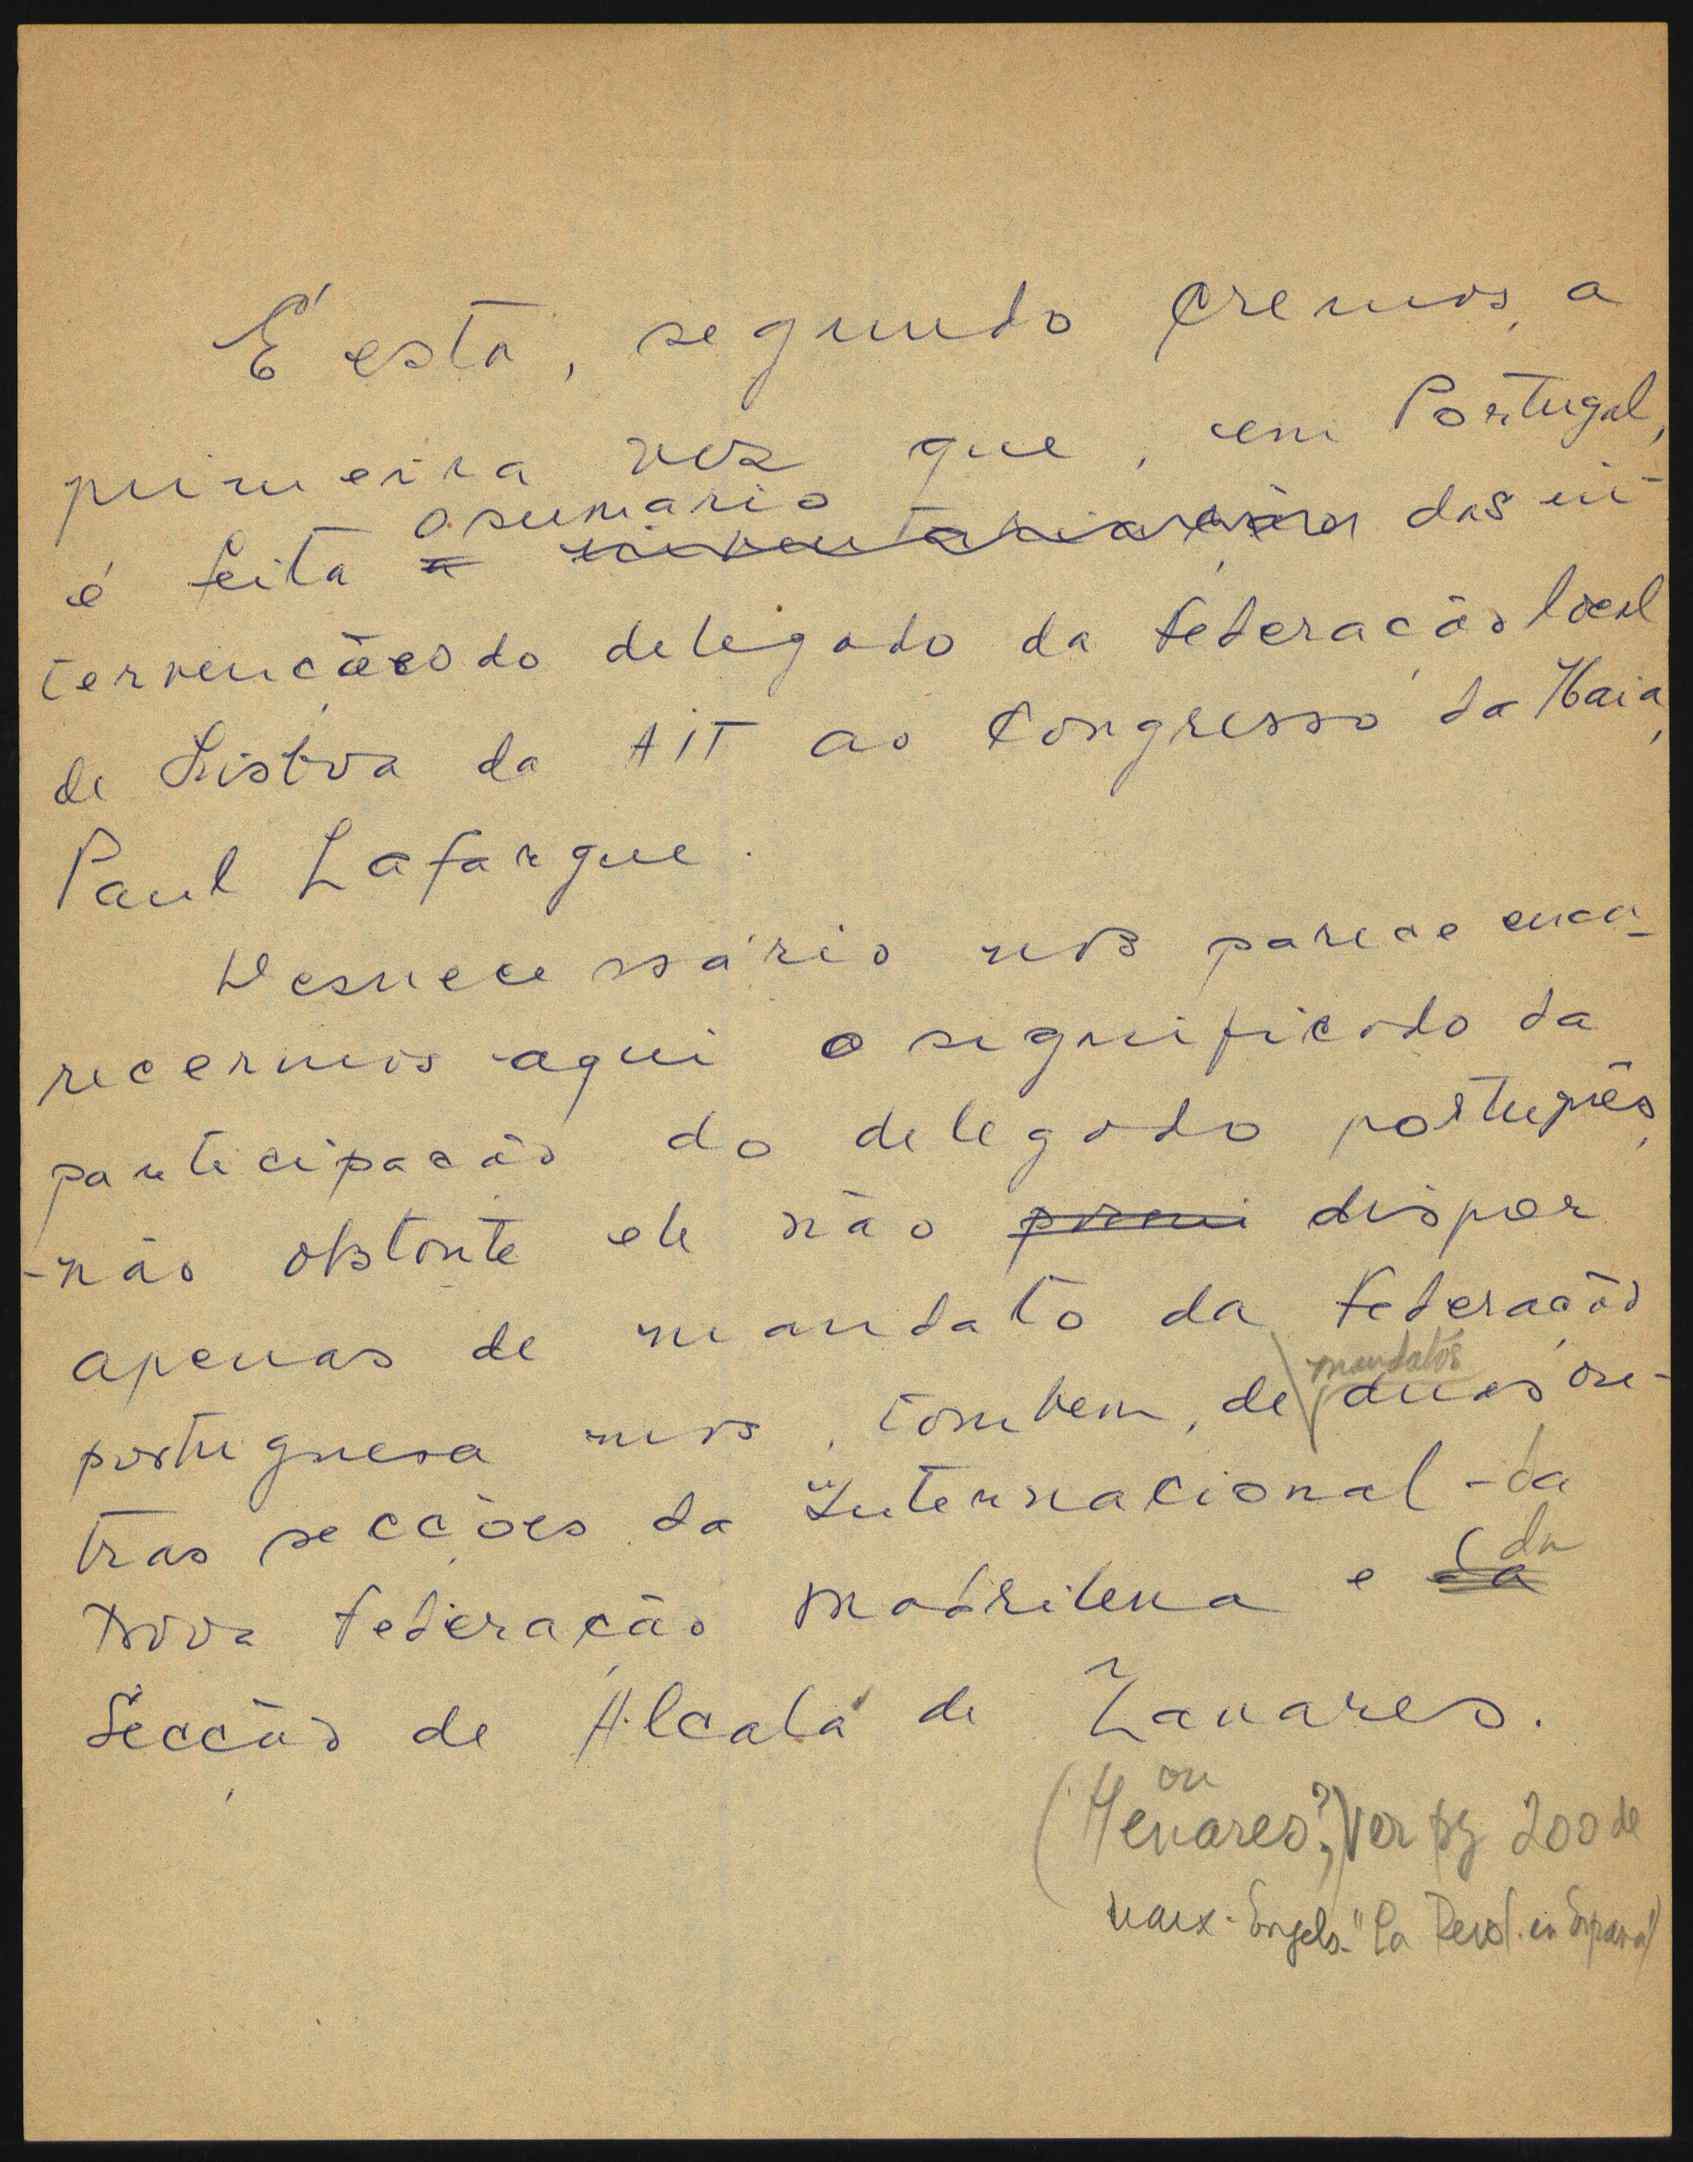 É esta, segundo cremos, a
primeira vez que, em Portugal,
é feita o sumario das in-
tervenções do delegado da Federação local
de Lisboa da AIT ao Congresso da Haia,
Paul Lafargue.
Desnecessário nos parece enca-
recermos aqui o significado da
participação do delegado português,
-não obstante ele não dispor
apenas de mandato da Federação
portuguesa mas, tambem, de mandatos duas ou-
tras secções da Internacional - da
Nova Federação Madrilena e da
Secção de Alcalá de Zanares.
(ou Henares?) Ver pg 200 de
Marx-Engels - "La Revol. en España"